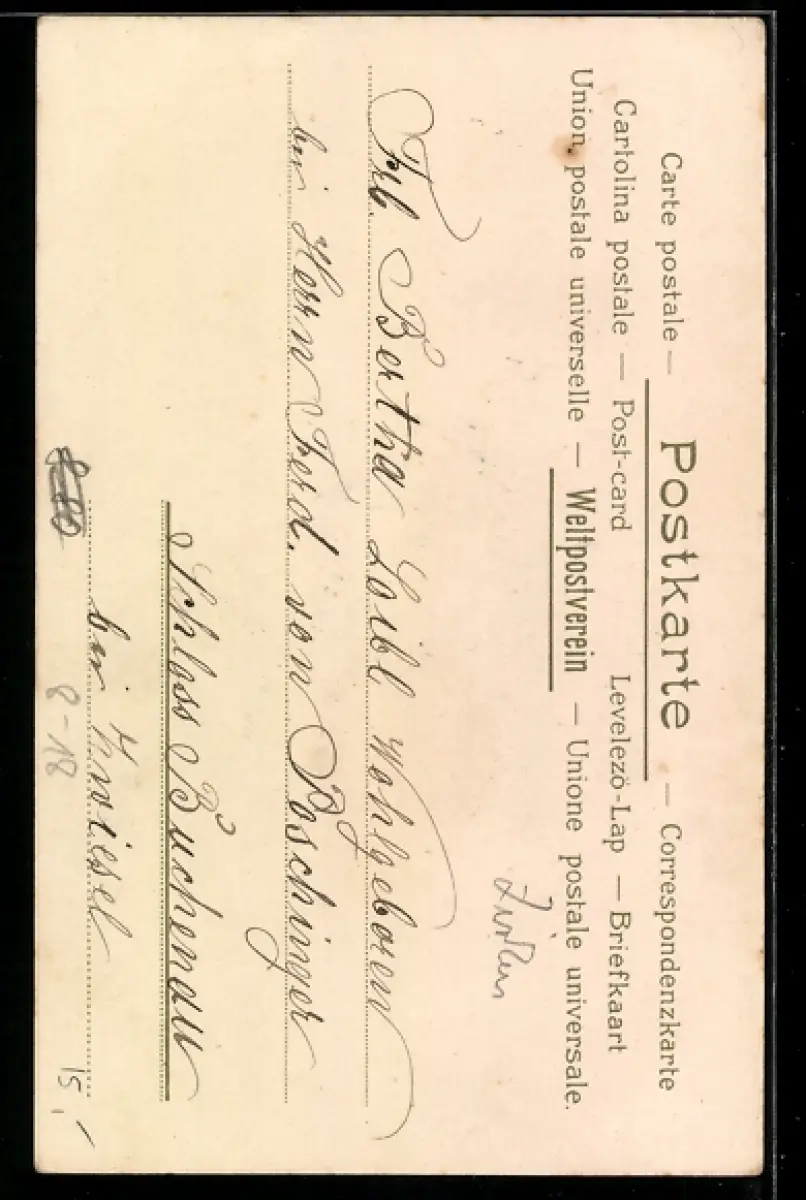 Carte postale — Postkarte — Correspondenzkarte
Cartolina postale — Post-card Levelezö-Lap — Briefkaart
Union postale universelle — Weltpostverein — Unione postale universale.
Frl. Bertha Loibl Wohlgeboren
bei Herrn Ferd. von Poschinger
Schloss Buchenau
bei Zwiesel
8-18
15,-